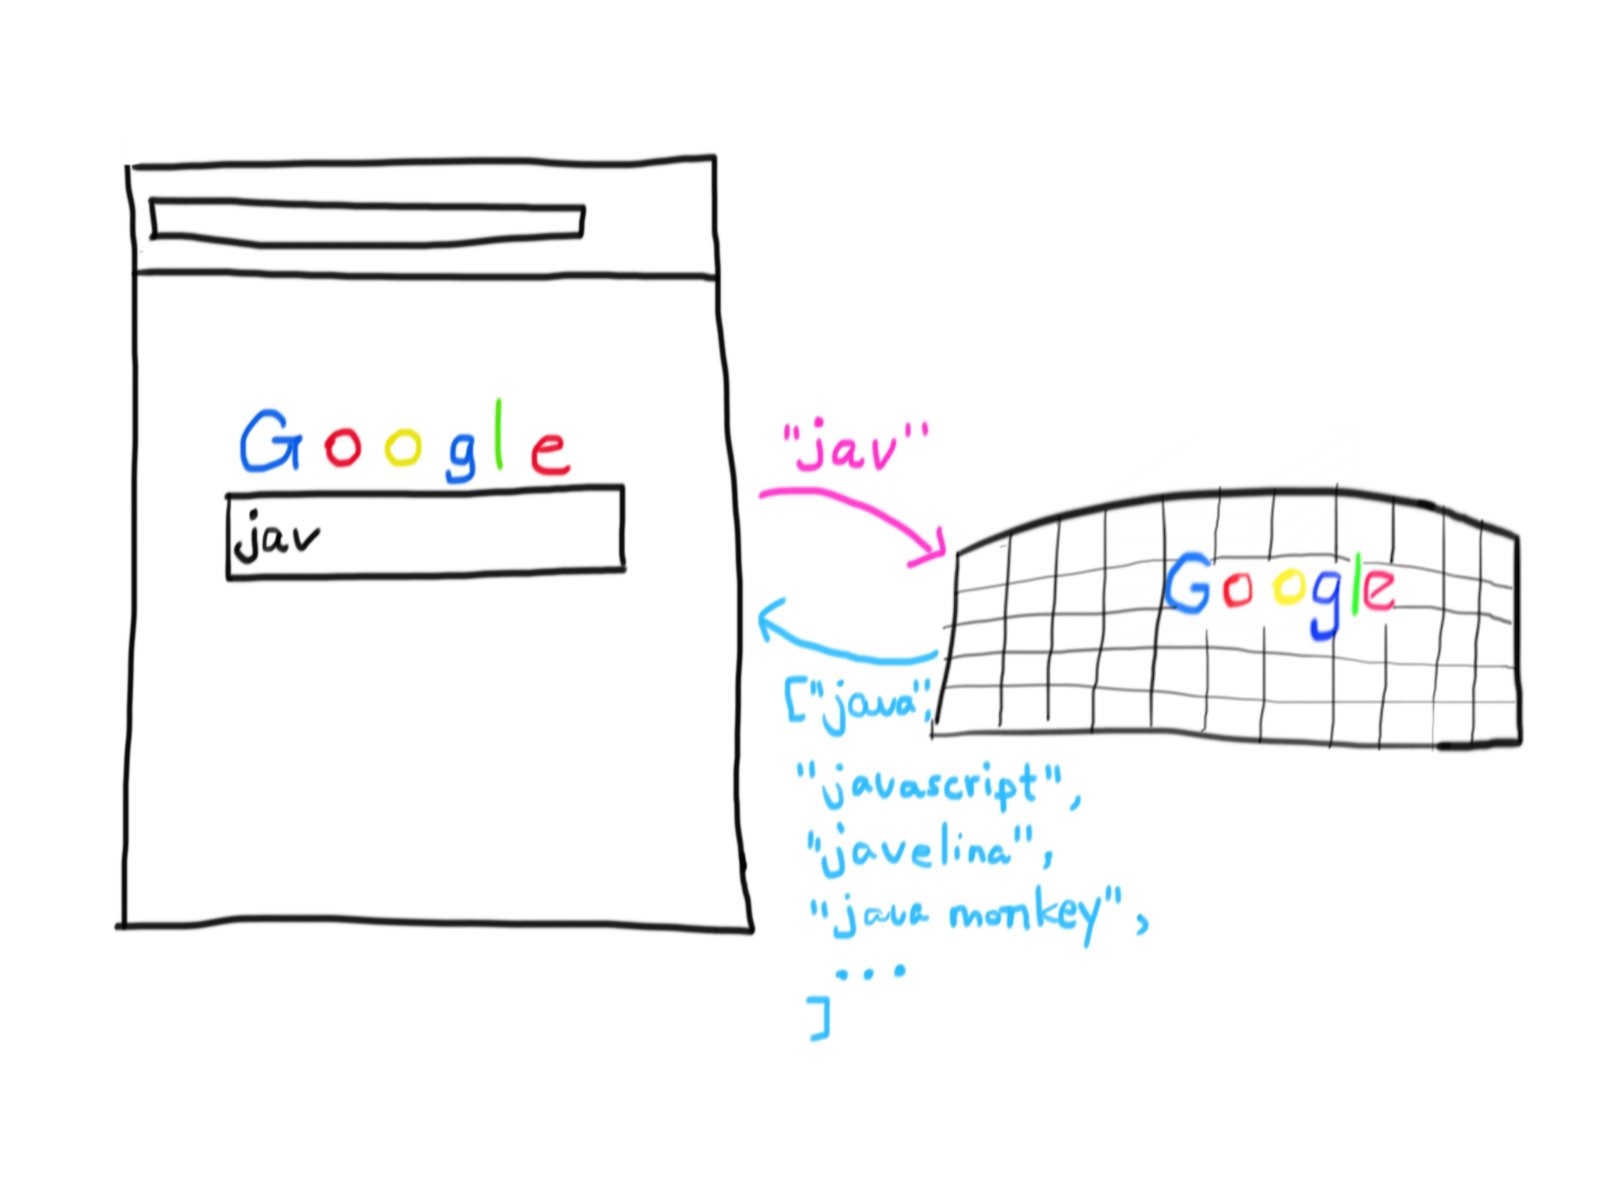 Google
jav
"jav"
Google
["java",
"javascript",
"javelina",
"java monkey",
...
]